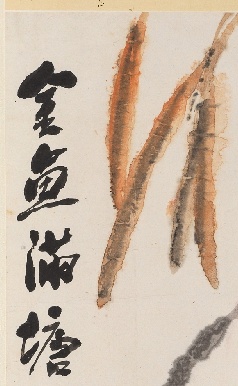 金魚滿塘